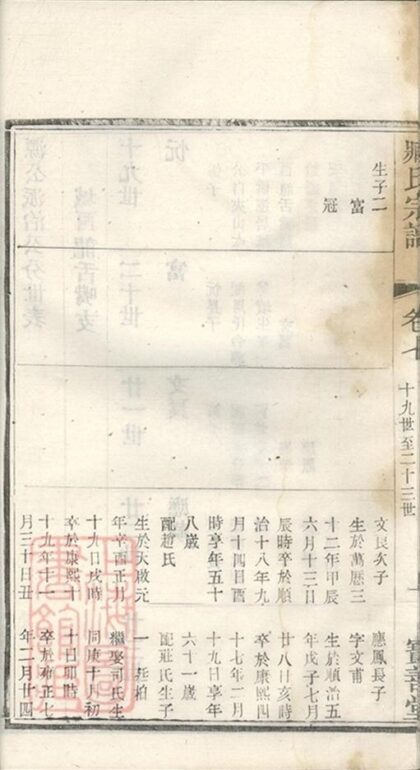 氏宗譜
卷七
十九世至二十三世
生子二
富
冠
次子
生於萬曆三
十二年甲辰
六月十三日
辰時卒於順
治十八年九
月十四日酉
時享年五十
八歲
配趙氏
生於天啟元
年辛酉正月
十九日戌時
卒於康熙十
十九年十一
月三十日丑
應鳳長子
字文甫
生於順治五
年戊子七月
廿八日亥時
卒於康熙四
十七年二月
十九日享年
六十一歲
配莊氏生子
一
繼娶司氏生
同庚十月初
十日卯時
卒於雍正七
年二月廿四